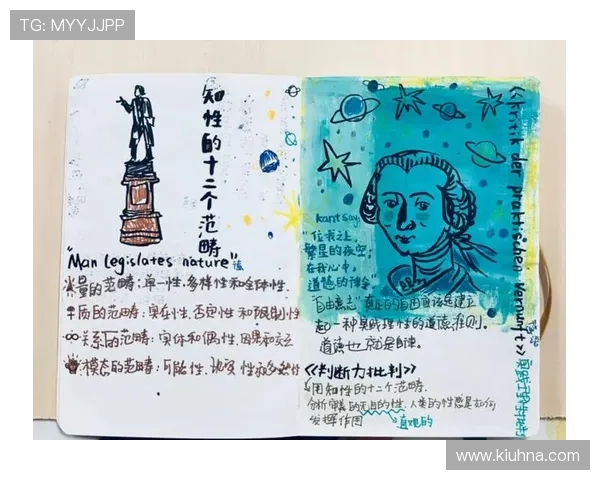 TG: MYYJJPP
知性的十二个范畴
"Man legislates nature"
量的范畴:单一性、多样性和全体性.
质的范畴:实在性、否定性和限制性
关系的范畴:实体和偶性、因果和交互
模态的范畴:可能性、现实性和必然性
kant say:
"位我之上,
繁星的夜空;
在我心中,
道德的律令"
"自由意志"真正的自由应该是建立
起一种实践理性的道德准则。
道德也就是自律.
<<kritik der praktischen Vernunft>>
实践理性批判
<<判断力批判>>
"用知性的十二个范畴.
分析审美的无目的性,人类的性感是如何
发挥作用
直观的
www.kiuhna.com